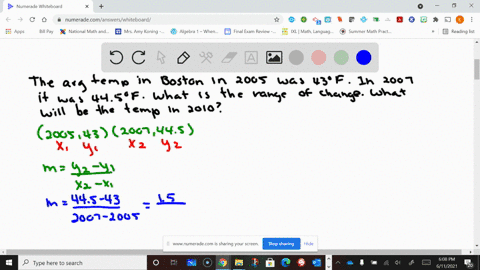 Numerade Whiteboard
numerade.com/answers/whiteboard/
Apps
Bill Pay
National Math and...
Algebra 1 - When...
Final Exam Review -...
IXL | Math, Language...
Summer Math Prac...
Reading list
The avg temp in Boston in 2005 was 43°F. In 2007
it was 44.5°F. What is the range of change. What
will be the temp in 2010?
(2005,43) (2007,44.5)
x₁ y₁ x₂ y₂
m = y₂-y₁
x₂-x₁
m = 44.5-43 = 1.5
2007-2005
www.numerade.com is sharing your screen.
Stop sharing
Hide
Type here to search
6:06 PM
6/11/2021